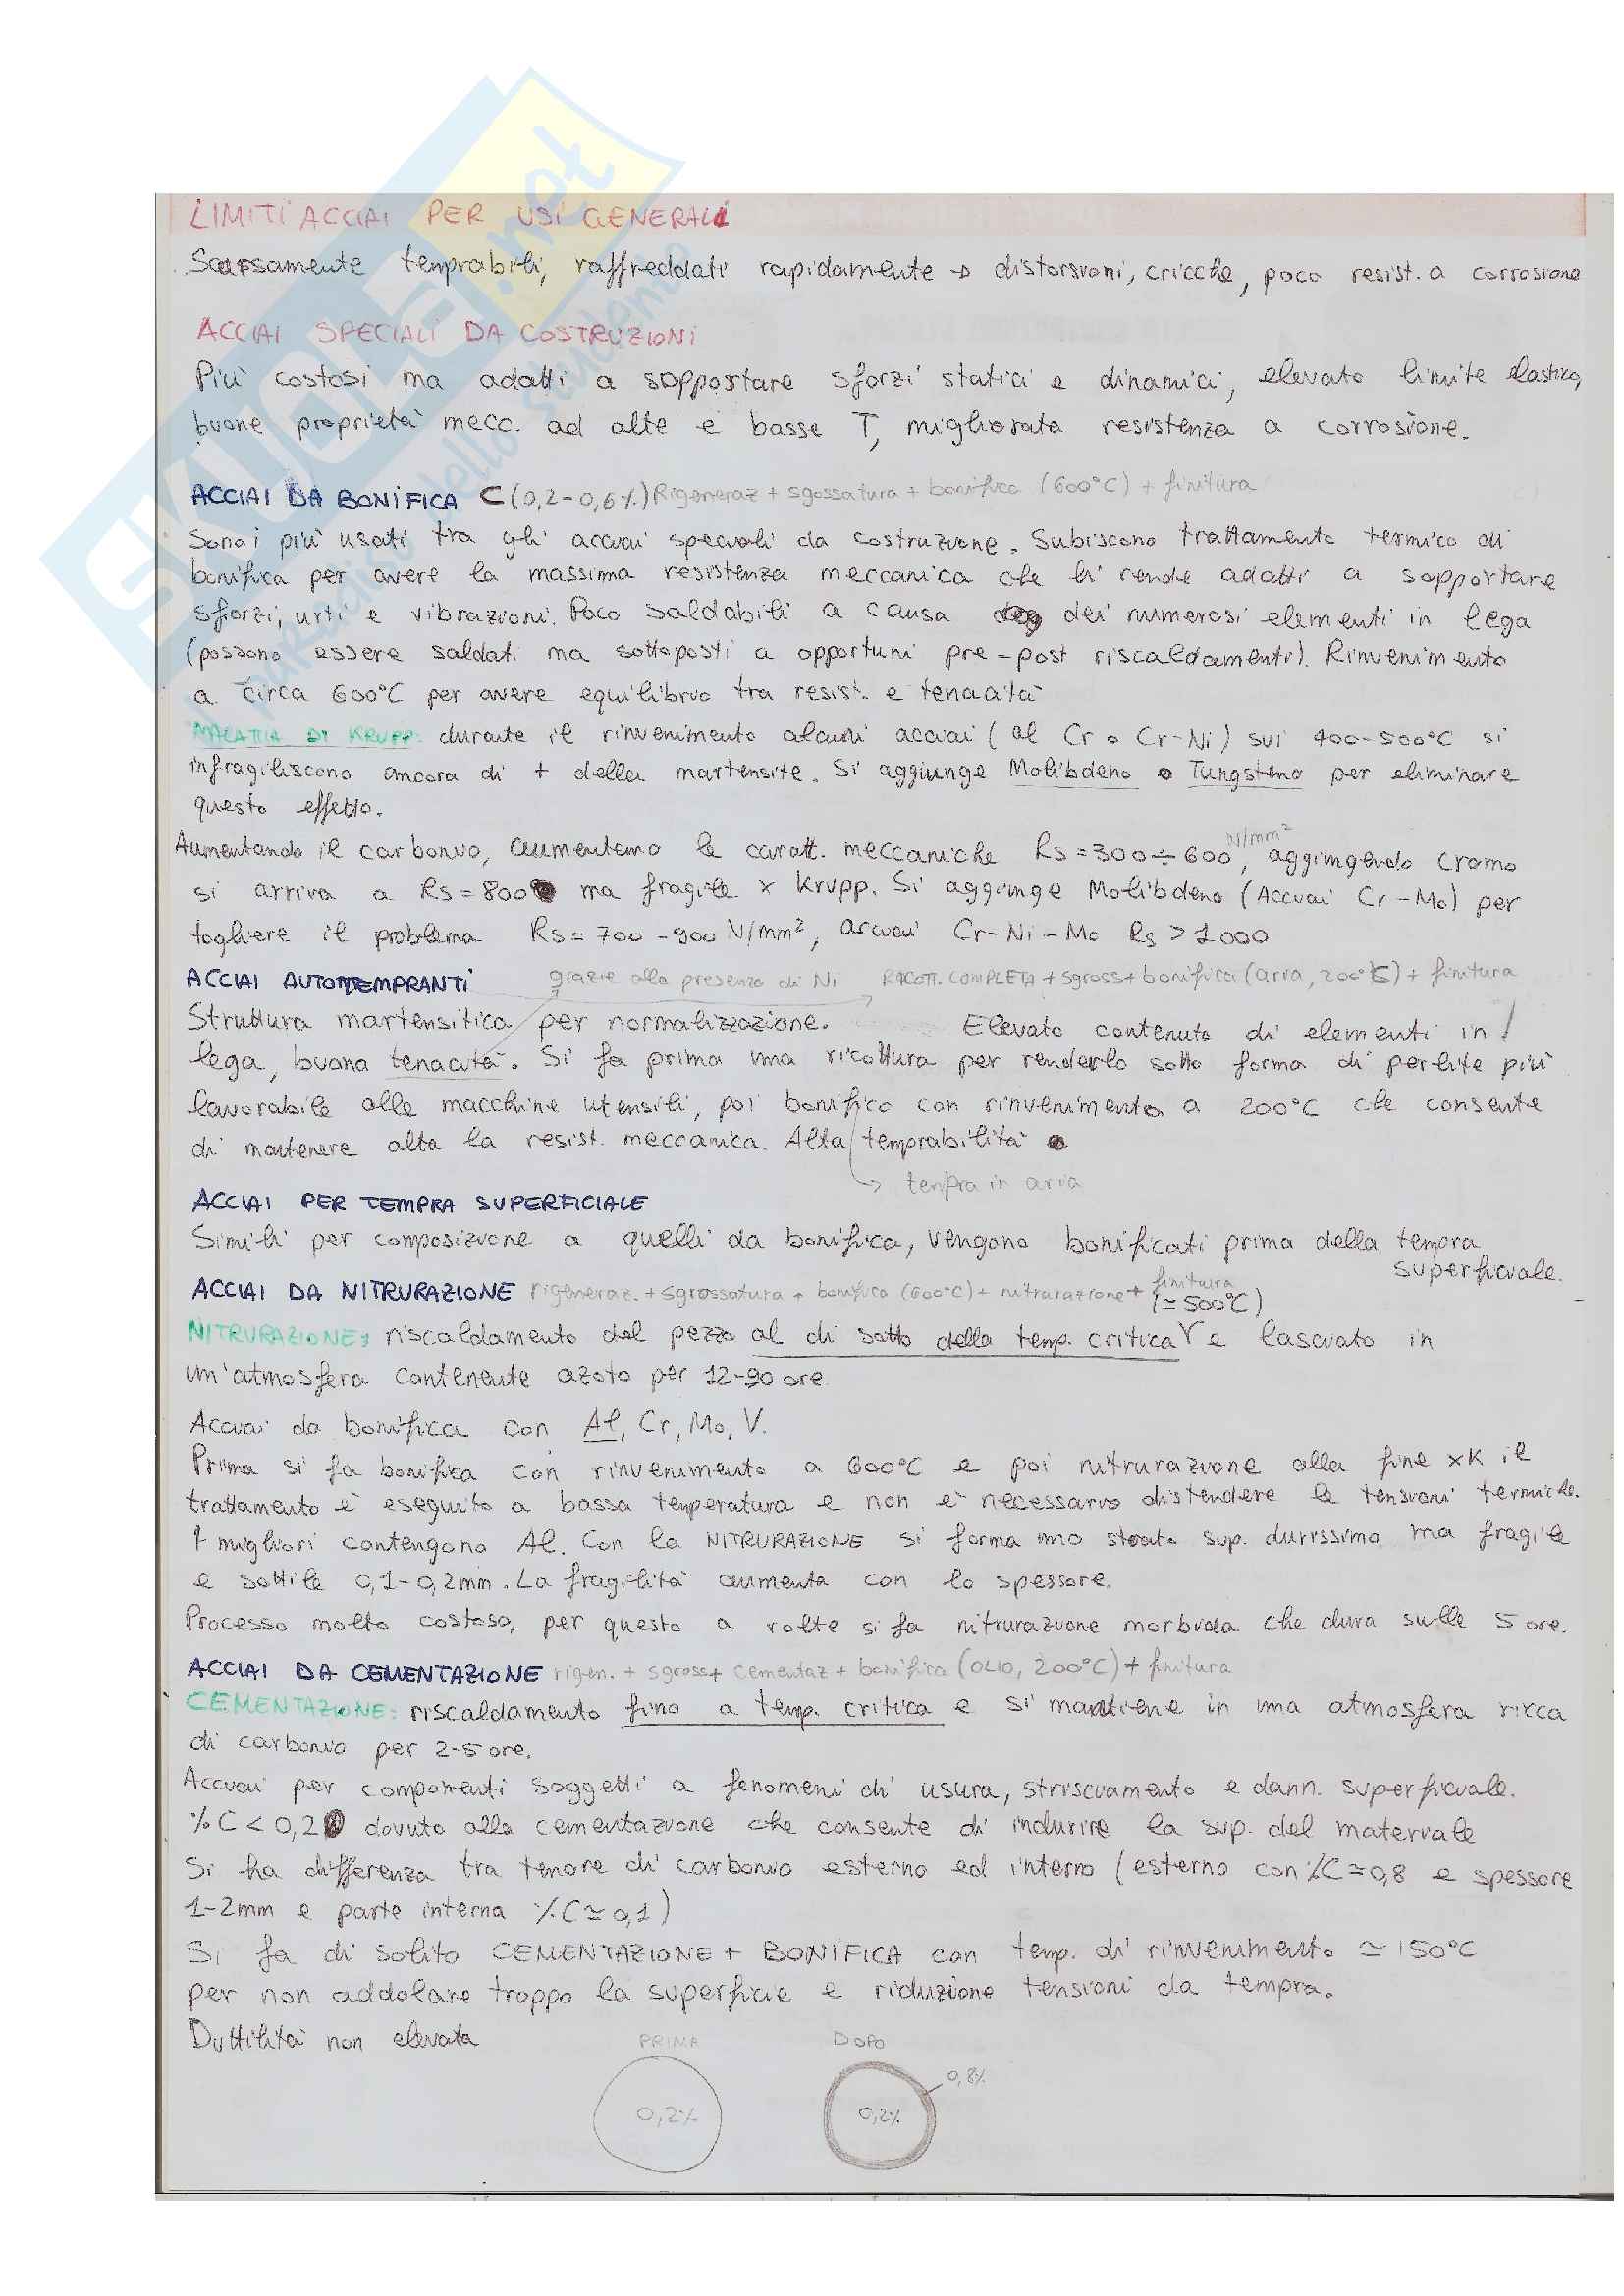 LIMITI ACCIAI PER USI GENERALI
Scarsamente temprabili, raffreddati rapidamente → distorsioni, cricche, poco resist. a corrosione
ACCIAI SPECIALI DA COSTRUZIONI
Più costosi ma adatti a sopportare sforzi statici e dinamici, elevato limite elastico,
buone proprietà mecc. ad alte e basse T, migliorata resistenza a corrosione.
ACCIAI DA BONIFICA C (0,2-0,6%) Rigeneraz + sgossatura + bonifica (600°C) + finitura
Sono i più usati tra gli acciai speciali da costruzione. Subiscono trattamento termico di
bonifica per avere la massima resistenza meccanica che li rende adatti a sopportare
sforzi, urti e vibrazioni. Poco saldabili a causa dei numerosi elementi in lega
(possono essere saldati ma sottoposti a opportuni pre-post riscaldamenti). Rinvenimento
a circa 600°C per avere equilibrio tra resist. e tenacità
MALATTIA DI KRUPP: durante il rinvenimento alcuni acciai (al Cr o Cr-Ni) sui 400-500°C si
infragiliscono ancora di + della martensite. Si aggiunge Molibdeno o Tungsteno per eliminare
questo effetto.
Aumentando il carbonio, aumentano le caratt. meccaniche Rs=300÷600 N/mm², aggiungendo cromo
si arriva a Rs=800 ma fragile x Krupp. Si aggiunge Molibdeno (Acciai Cr-Mo) per
togliere il problema Rs=700-900 N/mm², acciai Cr-Ni-Mo Rs >1000
ACCIAI AUTOTEMPRANTI grazie alla presenza di Ni RICOTT. COMPLETA + sgross + bonifica (aria, 200°C) + finitura
Struttura martensitica per normalizzazione. Elevato contenuto di elementi in
lega, buona tenacità. Si fa prima una ricottura per renderlo sotto forma di perlite più
lavorabile alle macchine utensili, poi bonifico con rinvenimento a 200°C che consente
di mantenere alta la resist. meccanica. Alta temprabilità
→ tempra in aria
ACCIAI PER TEMPRA SUPERFICIALE
Simili per composizione a quelli da bonifica, vengono bonificati prima della tempra
superficiale.
ACCIAI DA NITRURAZIONE rigeneraz. + sgrossatura + bonifica (600°C) + nitrurazione + finitura
(≃500°C)
NITRURAZIONE: riscaldamento del pezzo al di sotto della temp. critica e lasciato in
un'atmosfera contenente azoto per 12-90 ore
Acciai da bonifica con Al, Cr, Mo, V.
Prima si fa bonifica con rinvenimento a 600°C e poi nitrurazione alla fine xk il
trattamento è eseguito a bassa temperatura e non è necessario distendere le tensioni termiche.
I migliori contengono Al. Con la NITRURAZIONE si forma uno strato sup. durissimo ma fragile
e sottile 0,1-0,2mm. La fragilità aumenta con lo spessore.
Processo molto costoso, per questo a volte si fa nitrurazione morbida che dura sulle 5 ore.
ACCIAI DA CEMENTAZIONE rigen. + sgross + cementaz + bonifica (OLIO, 200°C) + finitura
CEMENTAZIONE: riscaldamento fino a temp. critica e si mantiene in una atmosfera ricca
di carbonio per 2-5 ore.
Acciai per componenti soggetti a fenomeni di usura, strisciamento e dann. superficiale.
%C < 0,2 dovuto alla cementazione che consente di indurire la sup. del materiale
Si ha differenza tra tenore di carbonio esterno ed interno (esterno con %C≃0,8 e spessore
1-2mm e parte interna %C≃0,1)
Si fa di solito CEMENTAZIONE + BONIFICA con temp. di rinvenimento ≃150°C
per non addolcire troppo la superficie e riduzione tensioni da tempra.
Duttilità non elevata
PRIMA DOPO
0,8%
0,2% 0,2%